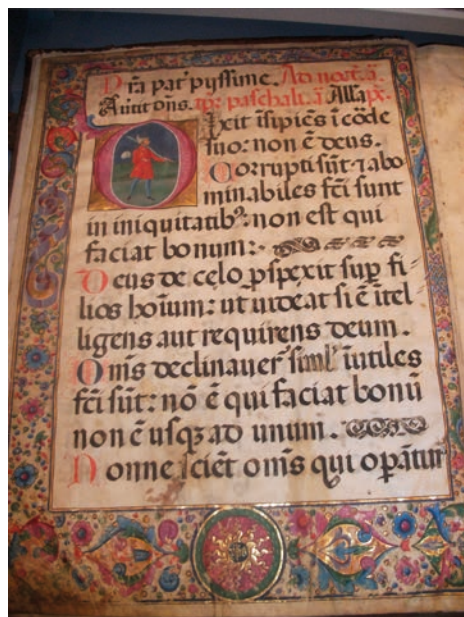 Pr̃a pat̃ pyssime. Ad noct̃. ã.
Avtit dñs. tp̃r paschali. ã Alla p̃s.
Dixit ĩsipiẽs ĩ cõde
suo: non ẽ deus.
Corrupti sũt ⁊ abo
minabiles fc̃i sunt
in iniquitatibꝰ: non est qui
faciat bonum:
Deus de celo ꝓspexit suꝑ fi⸗
lios hoĩum: ut uideat si ẽ ĩtel⸗
ligens aut requirens deum.
Om̃s declinauer̃ simĺ iutiles
fc̃i sũt: nõ ẽ qui faciat bonũ
non ẽ usqꝫ ad unum.
Nonne sciẽt om̃s qui oꝑãtur